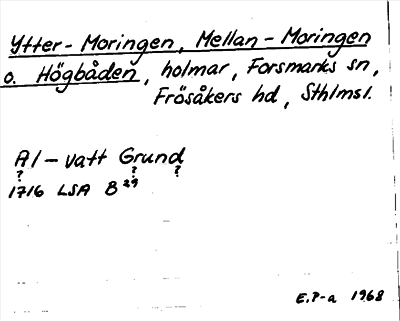 Ytter-Moringen, Mellan-Moringen
o. Högbåden, holmar, Forsmarks sn,
Frösåkers hd, Sthlmsl.
Al-vatt Grund
? ? ?
1716 LSA B 29
E.P-a 1968